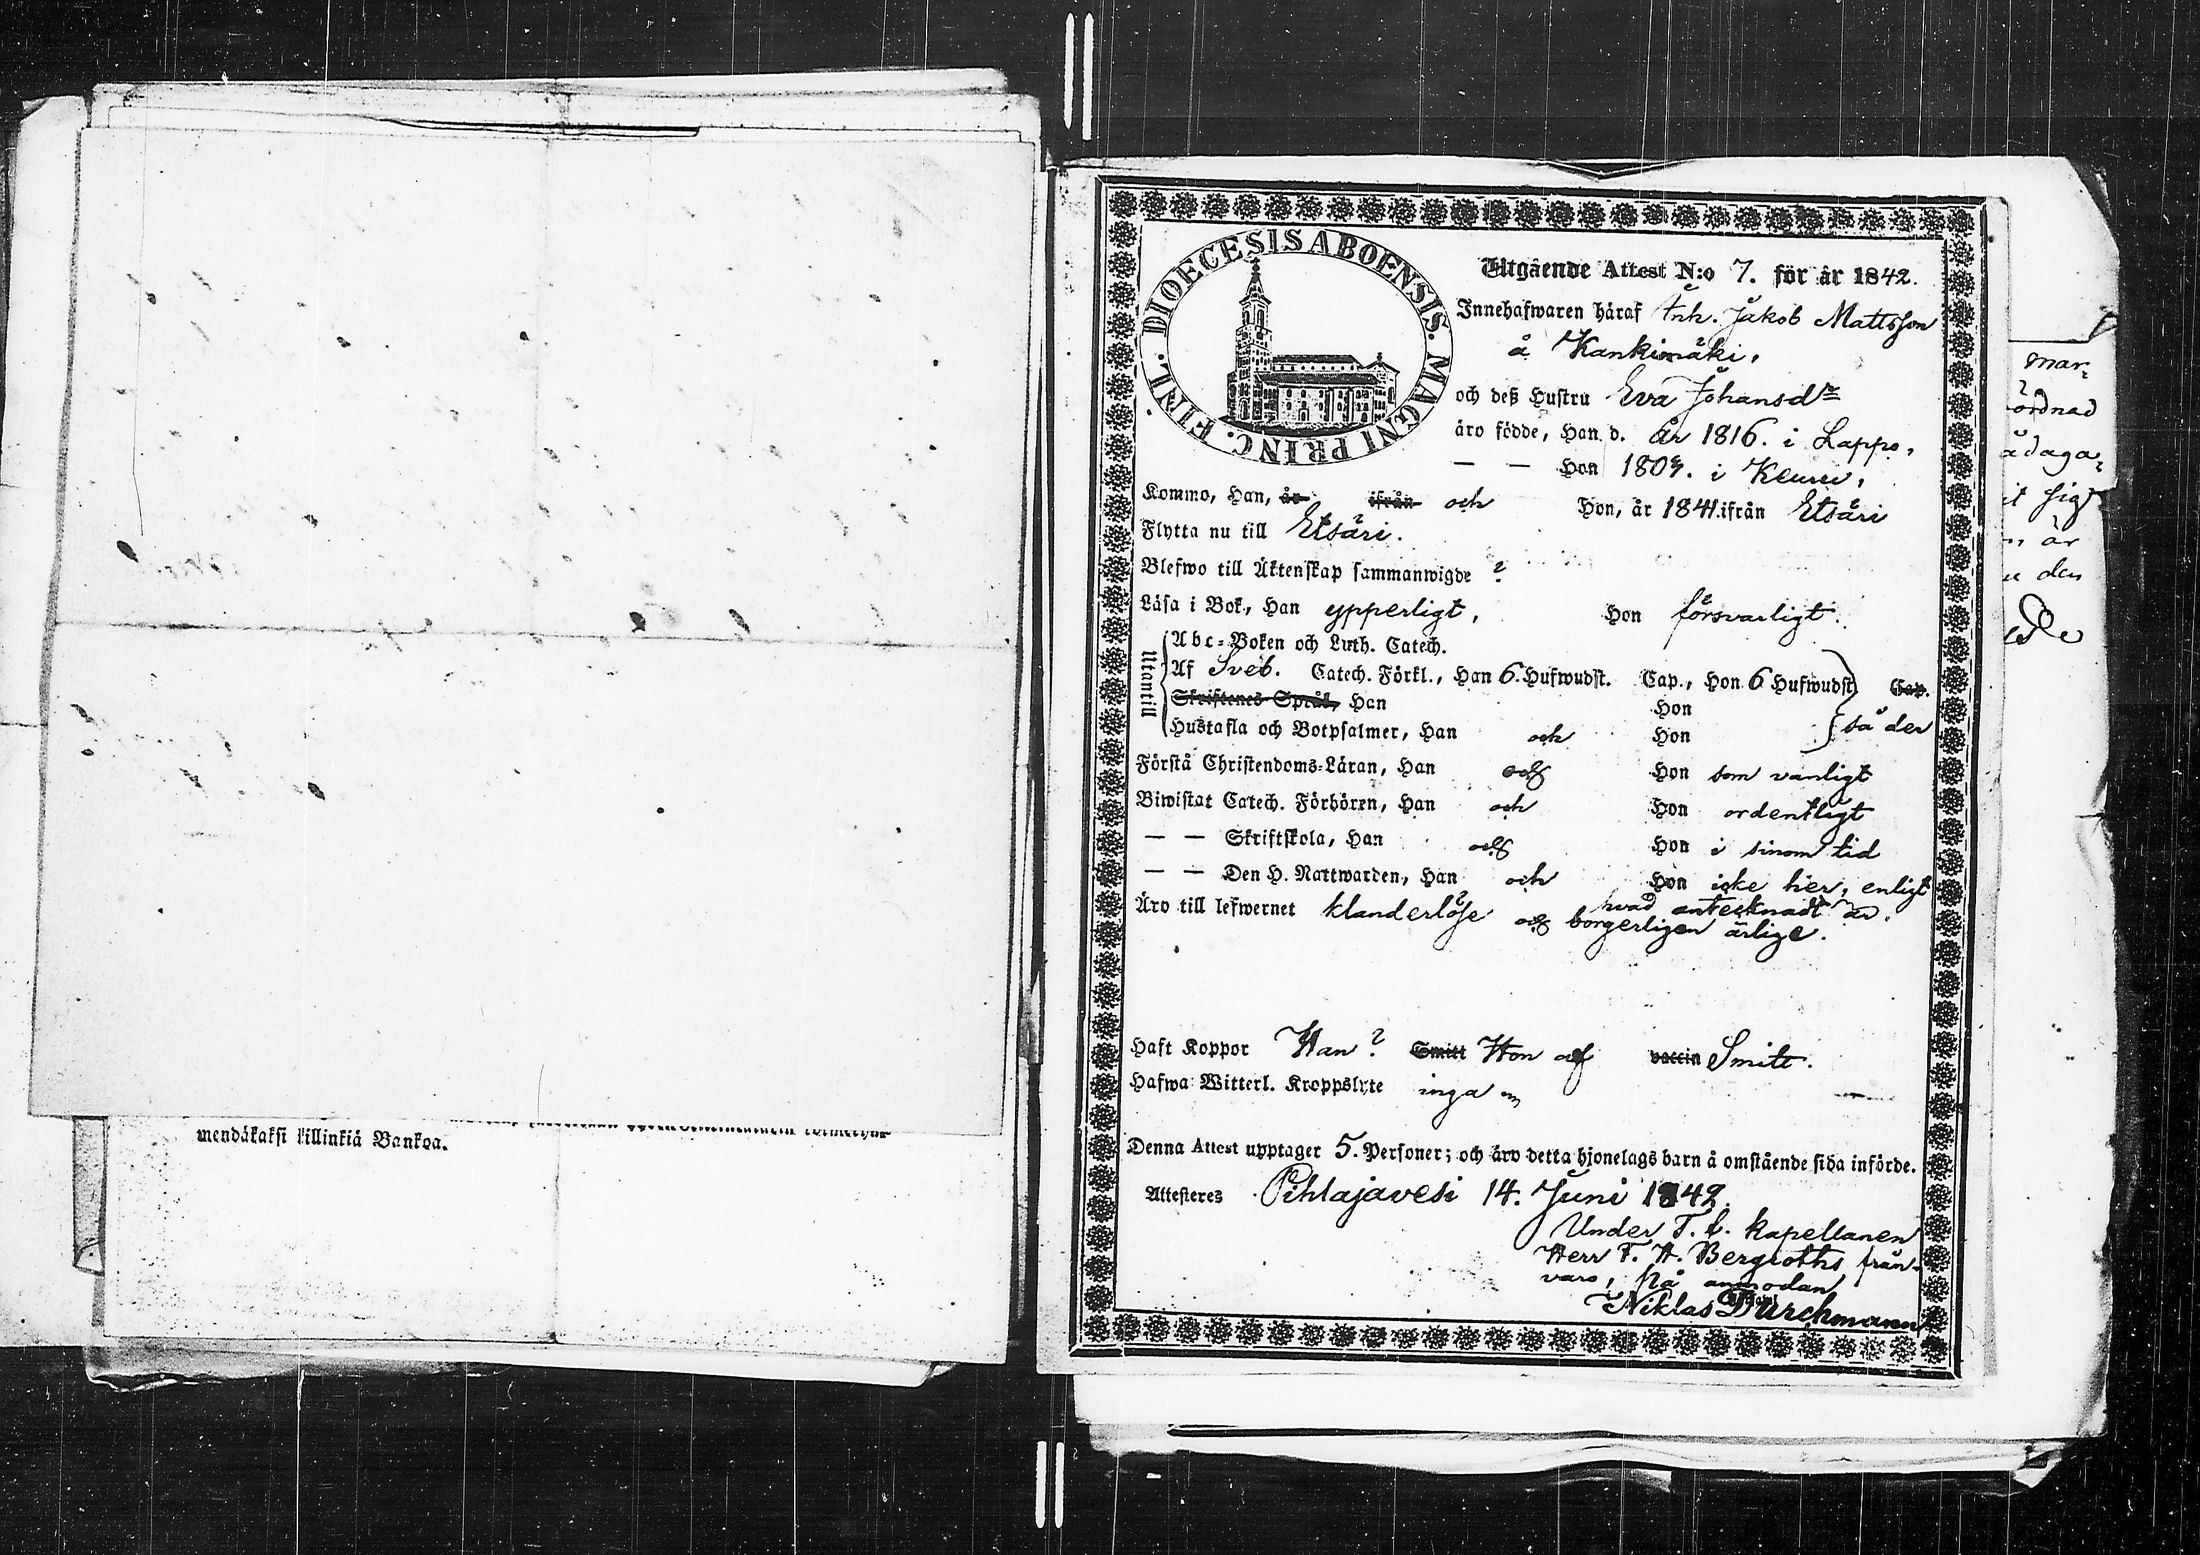 mendäkaksi killinkiä Bankoa.
DIOECESIS ABOENSIS. MAGNI PRINC. FINL.
Utgående Attest N:o 7. för år 1842.
Innehafwaren häraf Inh. Jakob Mattsson
å Kankimäki,
och deß Hustru Eva Johansdr
äro födde, Han d. år 1816. i Lappo,
— — Hon 1809. i Keuru,
Kommo, Han, år ifrån och Hon, år 1841 ifrån Etsäri
Flytta nu till Etsäri.
Blefwo till Äktenskap sammanwigde ?
Läsa i Bok, Han ypperligt, Hon försvarligt.
Utantill
Abc-Boken och Luth. Catech.
Af Sveb. Catech. Förkl., Han 6. Hufwudst. Cap., Hon 6 Hufwudst. Cap.
Skriftenes Språk, Han Hon
Hustafla och Botpsalmer, Han och Hon så der
Förstå Christendoms-Läran, Han och Hon som vanligt
Biwistat Catech. Förhören, Han och Hon ordentligt
— — Skriftskola, Han och Hon i sinom tid
— — Den H. Nattwarden, Han och Hon icke här, enligt
hvad antecknadt är.
Äro till lefwernet klanderlöse och borgerligen ärlige.
Haft Koppor Han ? Smitt Hon af vaccin Smitt.
Hafwa Witterl. Kroppslyte inga
Denna Attest upptager 5. Personer; och äro detta hjonelags barn å omstående sida införde.
Attesteres Pihlajavesi 14. Juni 1842.
Under T. f. kapellanen
Herr F. H. Bergroths från-
varo, på anmodan
Niklas Durchmann
mar-
ördnad
ådaga-
it sig
är
den